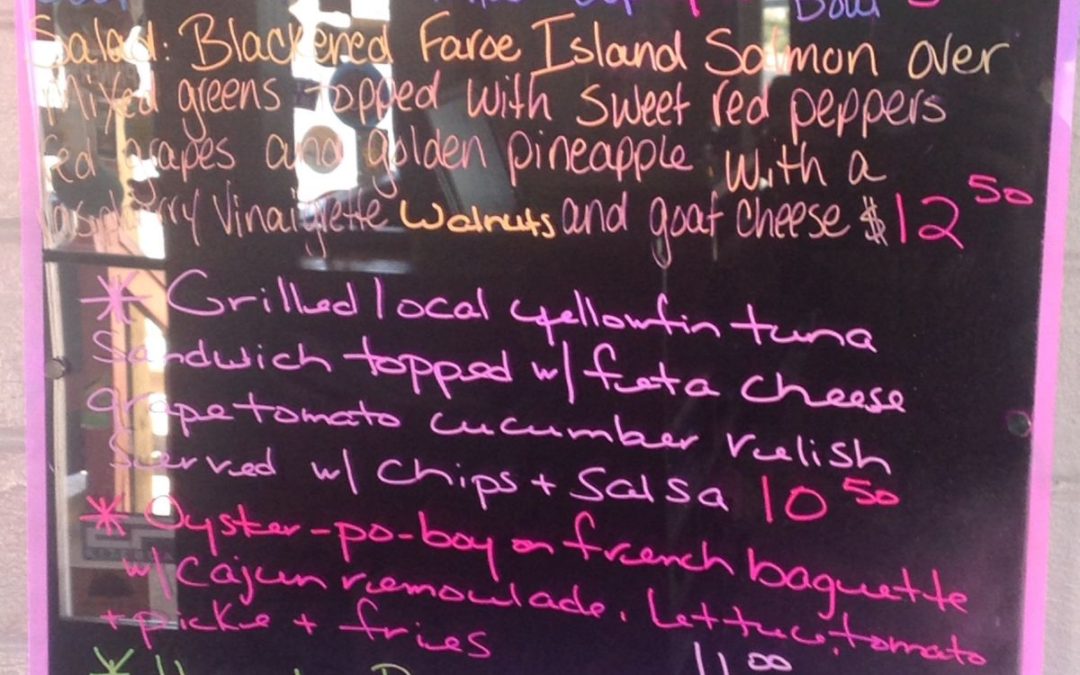 Bowl
Salad: Blackened Faroe Island Salmon over
mixed greens topped with sweet red peppers
red grapes and golden pineapple with a
raspberry vinaigrette walnuts and goat cheese $12 50
* Grilled local yellowfin tuna
Sandwich topped w/ feta cheese
grape tomato cucumber relish
Served w/ chips + Salsa 10 50
* Oyster-po-boy on french baguette
w/ Cajun remoulade, lettuce, tomato
+ pickle + fries
* 11 00